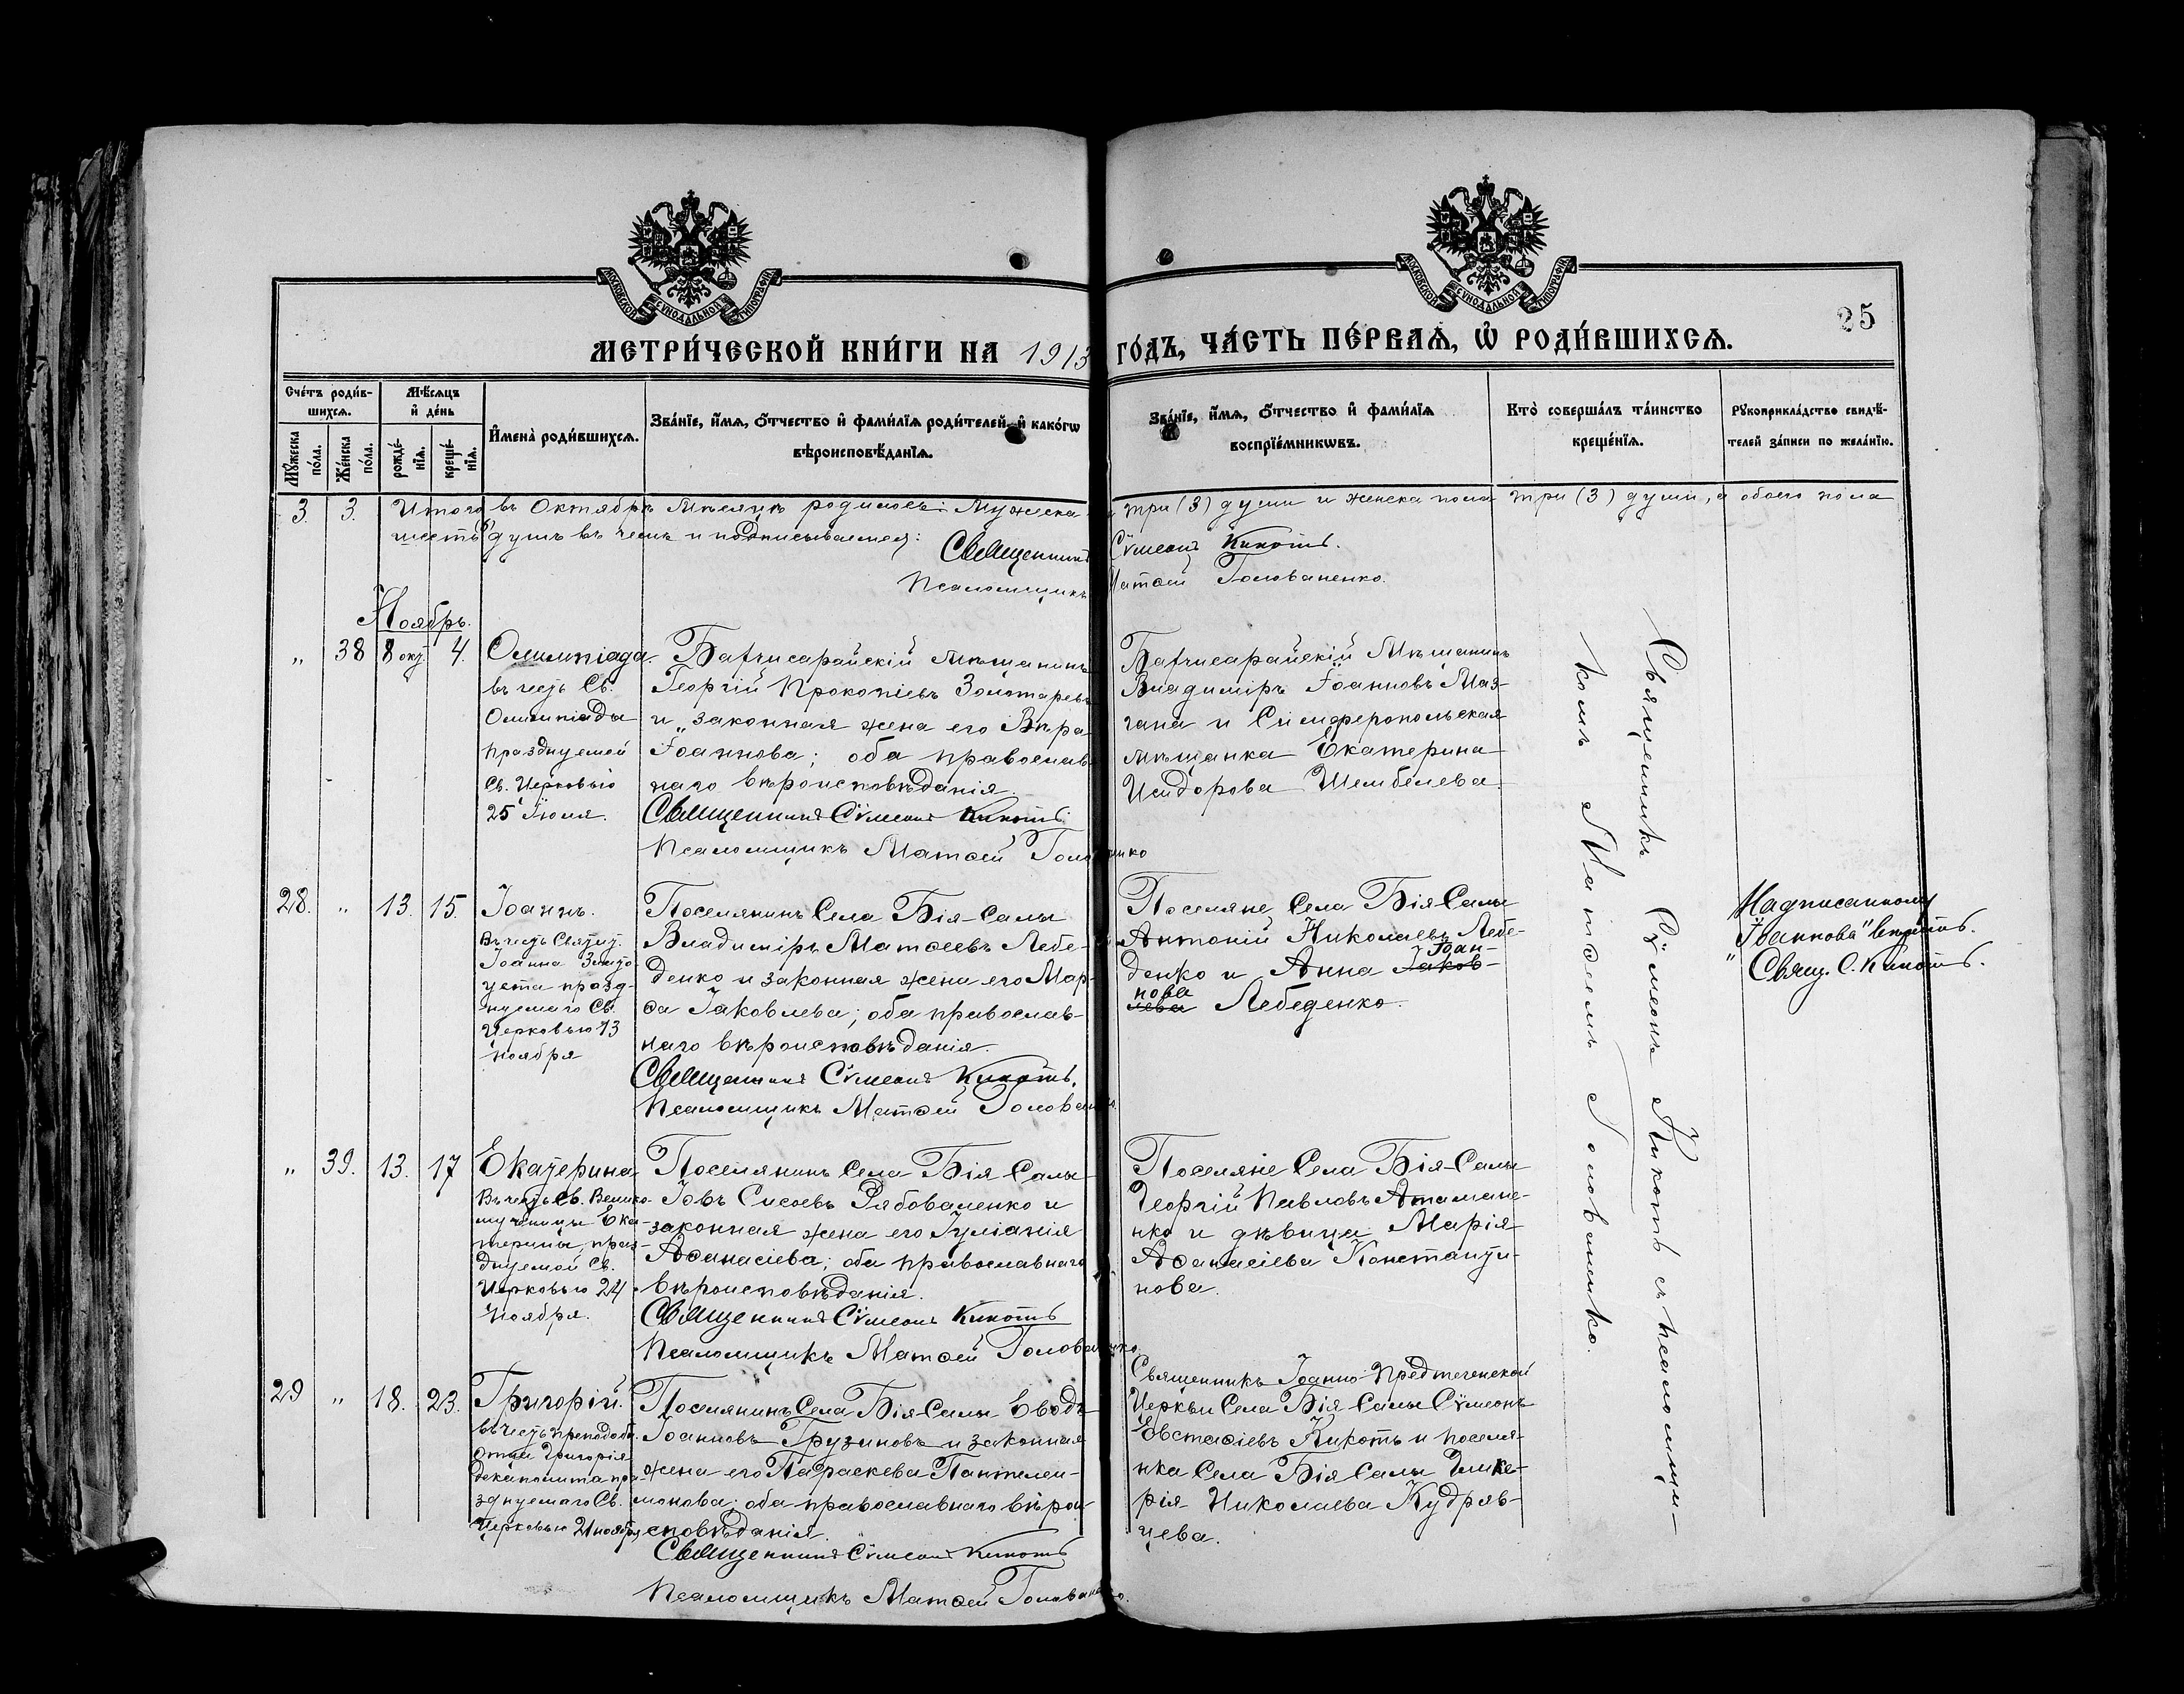 МОСКОВСКОЙ СѴНОДАЛЬНОЙ ТИПОГРАФІИ
МОСКОВСКОЙ СѴНОДАЛЬНОЙ ТИПОГРАФІИ
25
МЕТРИ́ЧЕСКОЙ КНИ́ГИ НА 1913 ГО́ДЪ, ЧА́СТЬ ПЕ́РВАѦ, Ѡ РОДИ́ВШИХСѦ.
Сче́тъ роди́в-
шихсѧ.
Мѣ́сѧцъ
и҆ де́нь
Мꙋ́жеска
по́ла.
Же́нска
по́ла.
рожде́-
нїѧ.
креще́-
нїѧ.
И҆мена̀ роди́вшихсѧ.
Зва́нїе, и҆́мѧ, ѻ҆́тчество и҆ фами́лїѧ роди́телей, и҆ како́гѡ
вѣроисповѣ́данїѧ.
Зва́нїе, и҆́мѧ, ѻ҆́тчество и҆ фами́лїѧ
воспрїе́мникѡвъ.
Кто̀ соверша́лъ та́инство
креще́нїѧ.
Рꙋкоприкла́дство свидѣ́-
телей за́писи по жела́нїю.
3. 3. Итого въ Октябрѣ Мѣсяцѣ родилось: Мужеска три (3) души и женска пола три (3) души, а обоего пола
шесть душъ въ чемъ и подписываемся:
Священникъ Сѵмеонъ Кикоть.
Псаломщикъ Матѳей Голованенко.
Ноябрь.
„ 38 8 окт. 4.
Олимпіада.
въ честь Св.
Олимпіады
празднуемой
Св. Церковью
25 Іюля.
Бахчисарайскій Мѣщанинъ
Георгій Прокопіевъ Золотаревъ
и законная жена его Вѣра
Іоаннова; оба православ
наго вѣроисповѣданія.
Священникъ Сѵмеонъ Кикоть.
Псаломщикъ Матѳей Голованенко
Бахчисарайскій Мѣщанинъ
Владиміръ Іоанновъ Маз-
гана и Симферопольская
мѣщанка Екатерина
Исидорова Шембелева.
28. „ 13. 15.
Іоаннъ.
Въ честь Святит.
Іоанна Злато-
уста празд-
нуемаго Св.
Церковью 13
ноября
Поселянинъ Села Бія-Салы
Владиміръ Матѳеевъ Лебе-
денко и законная жена его Мар-
ѳа Іаковлева; оба православ-
наго вѣроисповѣданія.
Священникъ Сѵмеонъ Кикоть.
Псаломщикъ Матѳей Голованенко.
Поселяне Села Бія-Салы
Антоній Николаевъ Лебе-
Іоан-
денко и Анна Іаков-
нова
лева Лебеденко.
Надписанному
„Іоаннова" вѣрить.
Свящ. С. Кикоть.
„ 39. 13. 17
Екатерина
Въ честь Св. Велико-
мученицы Ека-
терины, праз-
днуемой Св.
Церковью 24
Ноября.
Поселянинъ Села Бія Салы
Іовъ Сисоевъ Рябоваленко и
законная жена его Іуліанія
Аѳанасіева; оба православнаго
вѣроисповѣданія.
Священникъ Сѵмеонъ Кикоть
Псаломщикъ Матѳей Голованенко
Поселяне Села Бія-Салы
Георгій Павловъ Атамане-
нко и дѣвица Марія
Аѳанасіева Константи-
нова.
29 „ 18. 23.
Григорій.
въ честь преподобн.
отца Григорія
Декаполита пра
зднуемаго Св.
Церковью 21 ноября
Поселянинъ Села Бія-Салы Еводъ
Іоанновъ Грузиновъ и законная
жена его Параскева Пантелеи-
монова; оба православнаго вѣрои-
сповѣданія.
Священникъ Сѵмеонъ Кикоть
Псаломщикъ Матѳей Голованенко.
Священникъ Іоанно-Предтеченской
Церкви Села Бія Салы Сѵмеонъ
Евстаѳіевъ Кикоть и поселя-
нка Села Бія Салы Глике-
рія Николаева Кудряв-
цева.
Священникъ Сѵмеонъ Кикоть съ псаломщи-
комъ Матѳеемъ Голованенко.